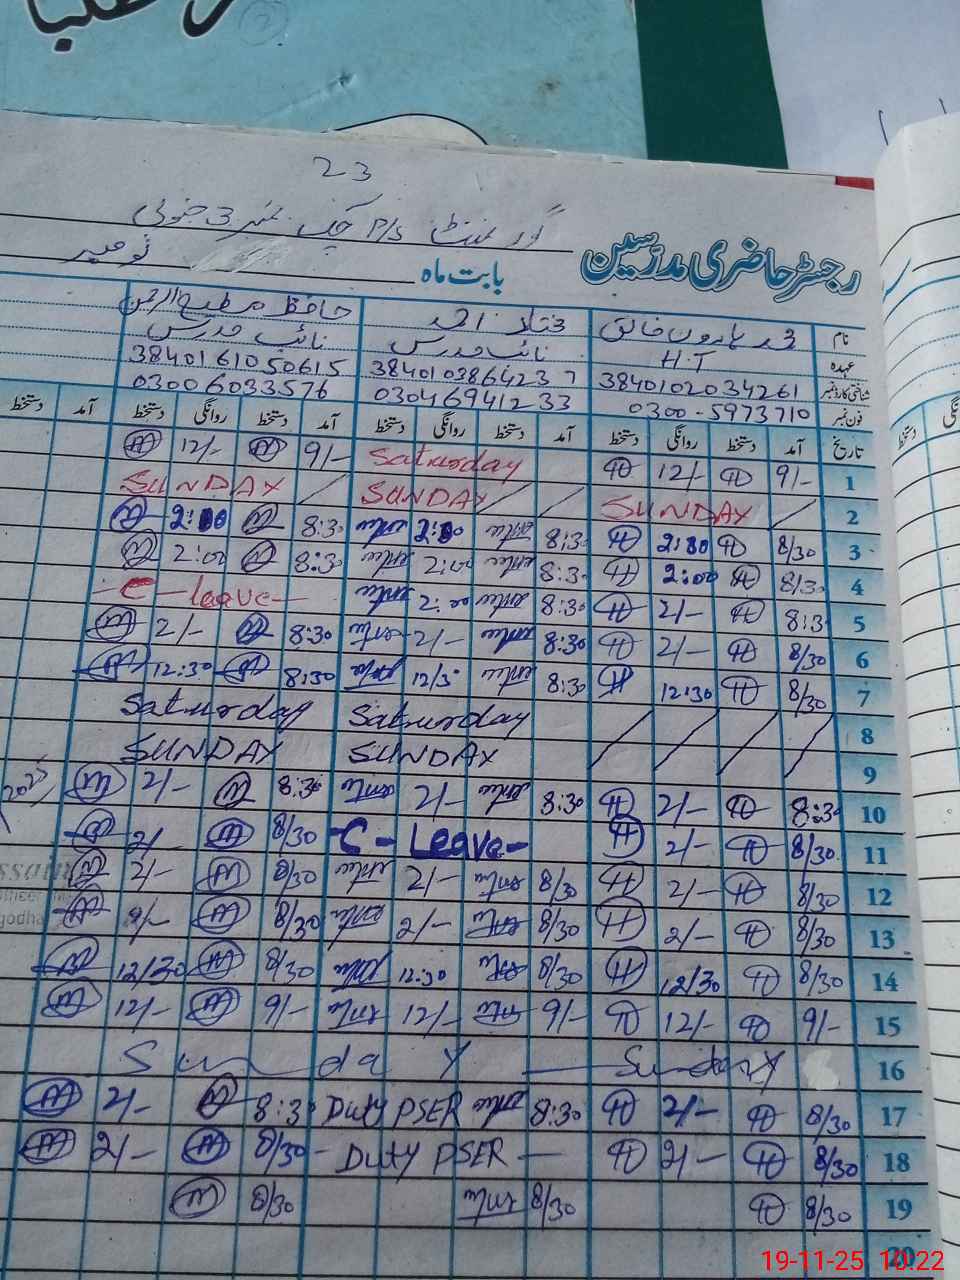 23
گورنمنٹ P/S چک نمبر 3 جنوبی
رجسٹر حاضری مدرسین
بابت ماہ نومبر
نام محمد ہارون خالق مختار احمد حافظ مطیع الرحمن
عہدہ H.T نائب مدرس نائب مدرس
شناختی کارڈ نمبر 3840102034261 3840103864237 3840161050615
فون نمبر 0300-5973710 03046941233 03006033576
تاریخ آمد دستخط روانگی دستخط آمد دستخط روانگی دستخط آمد دستخط روانگی دستخط آمد دستخط
1 9/- H 12/- H Saturday 9/- M 12/- M
2 SUNDAY SUNDAY SUNDAY
3 8/30 H 2:00 H 8:30 2:00 8:30 M 2:00 M
4 8/30 H 2:00 H 8:30 2:00 8:30 M 2:00 M
5 8:30 H 2/- H 8:30 2:00 -C-leave-
6 8/30 H 2/- H 8:30 2/- 8:30 M 2/- M
7 8/30 H 12:30 H 8:30 12/30 8:30 M 12:30 M
8 Saturday Saturday
9 SUNDAY SUNDAY
10 8:30 H 2/- H 8:30 2/- 8:30 M 2/- M
2025
11 8/30 H 2/- H -C-Leave- 8/30 M 2/- M
12 8/30 H 2/- H 8/30 2/- 8/30 M 2/- M
13 8/30 H 2/- H 8/30 2/- 8/30 M 2/- M
14 8/30 H 12/30 H 8/30 12:30 8/30 M 12/30 M
15 9/- H 12/- H 9/- 12/- 9/- M 12/- M
16 Sunday Sunday
17 8/30 H 2/- H 8:30 Duty PSER 8:30 M 2/- M
18 8/30 H 2/- H Duty PSER 8/30 M 2/- M
19 8/30 H 8/30 8/30 M
20
19-11-25 10:22